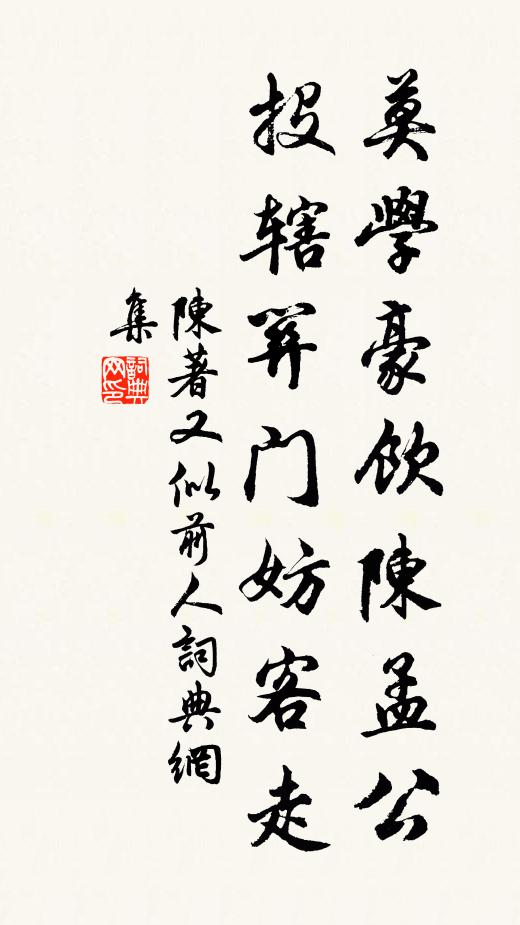 莫學豪飲陳孟公
投辖关门妨客走
陳著又似前人詞典網
集
詞典
网印